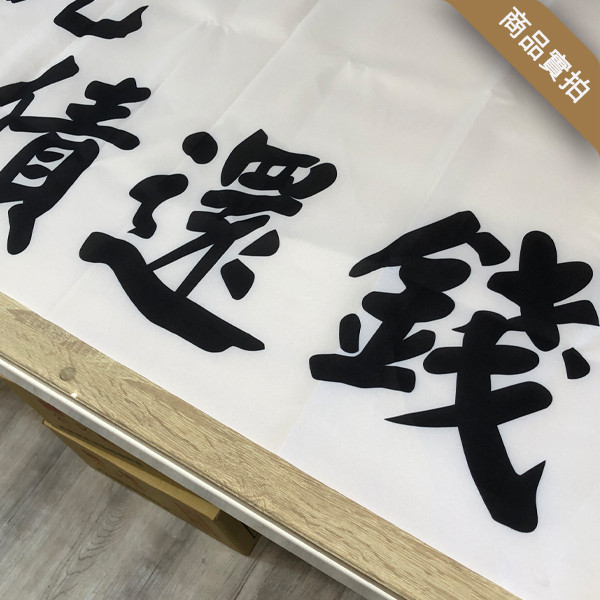 商品實拍
債還錢